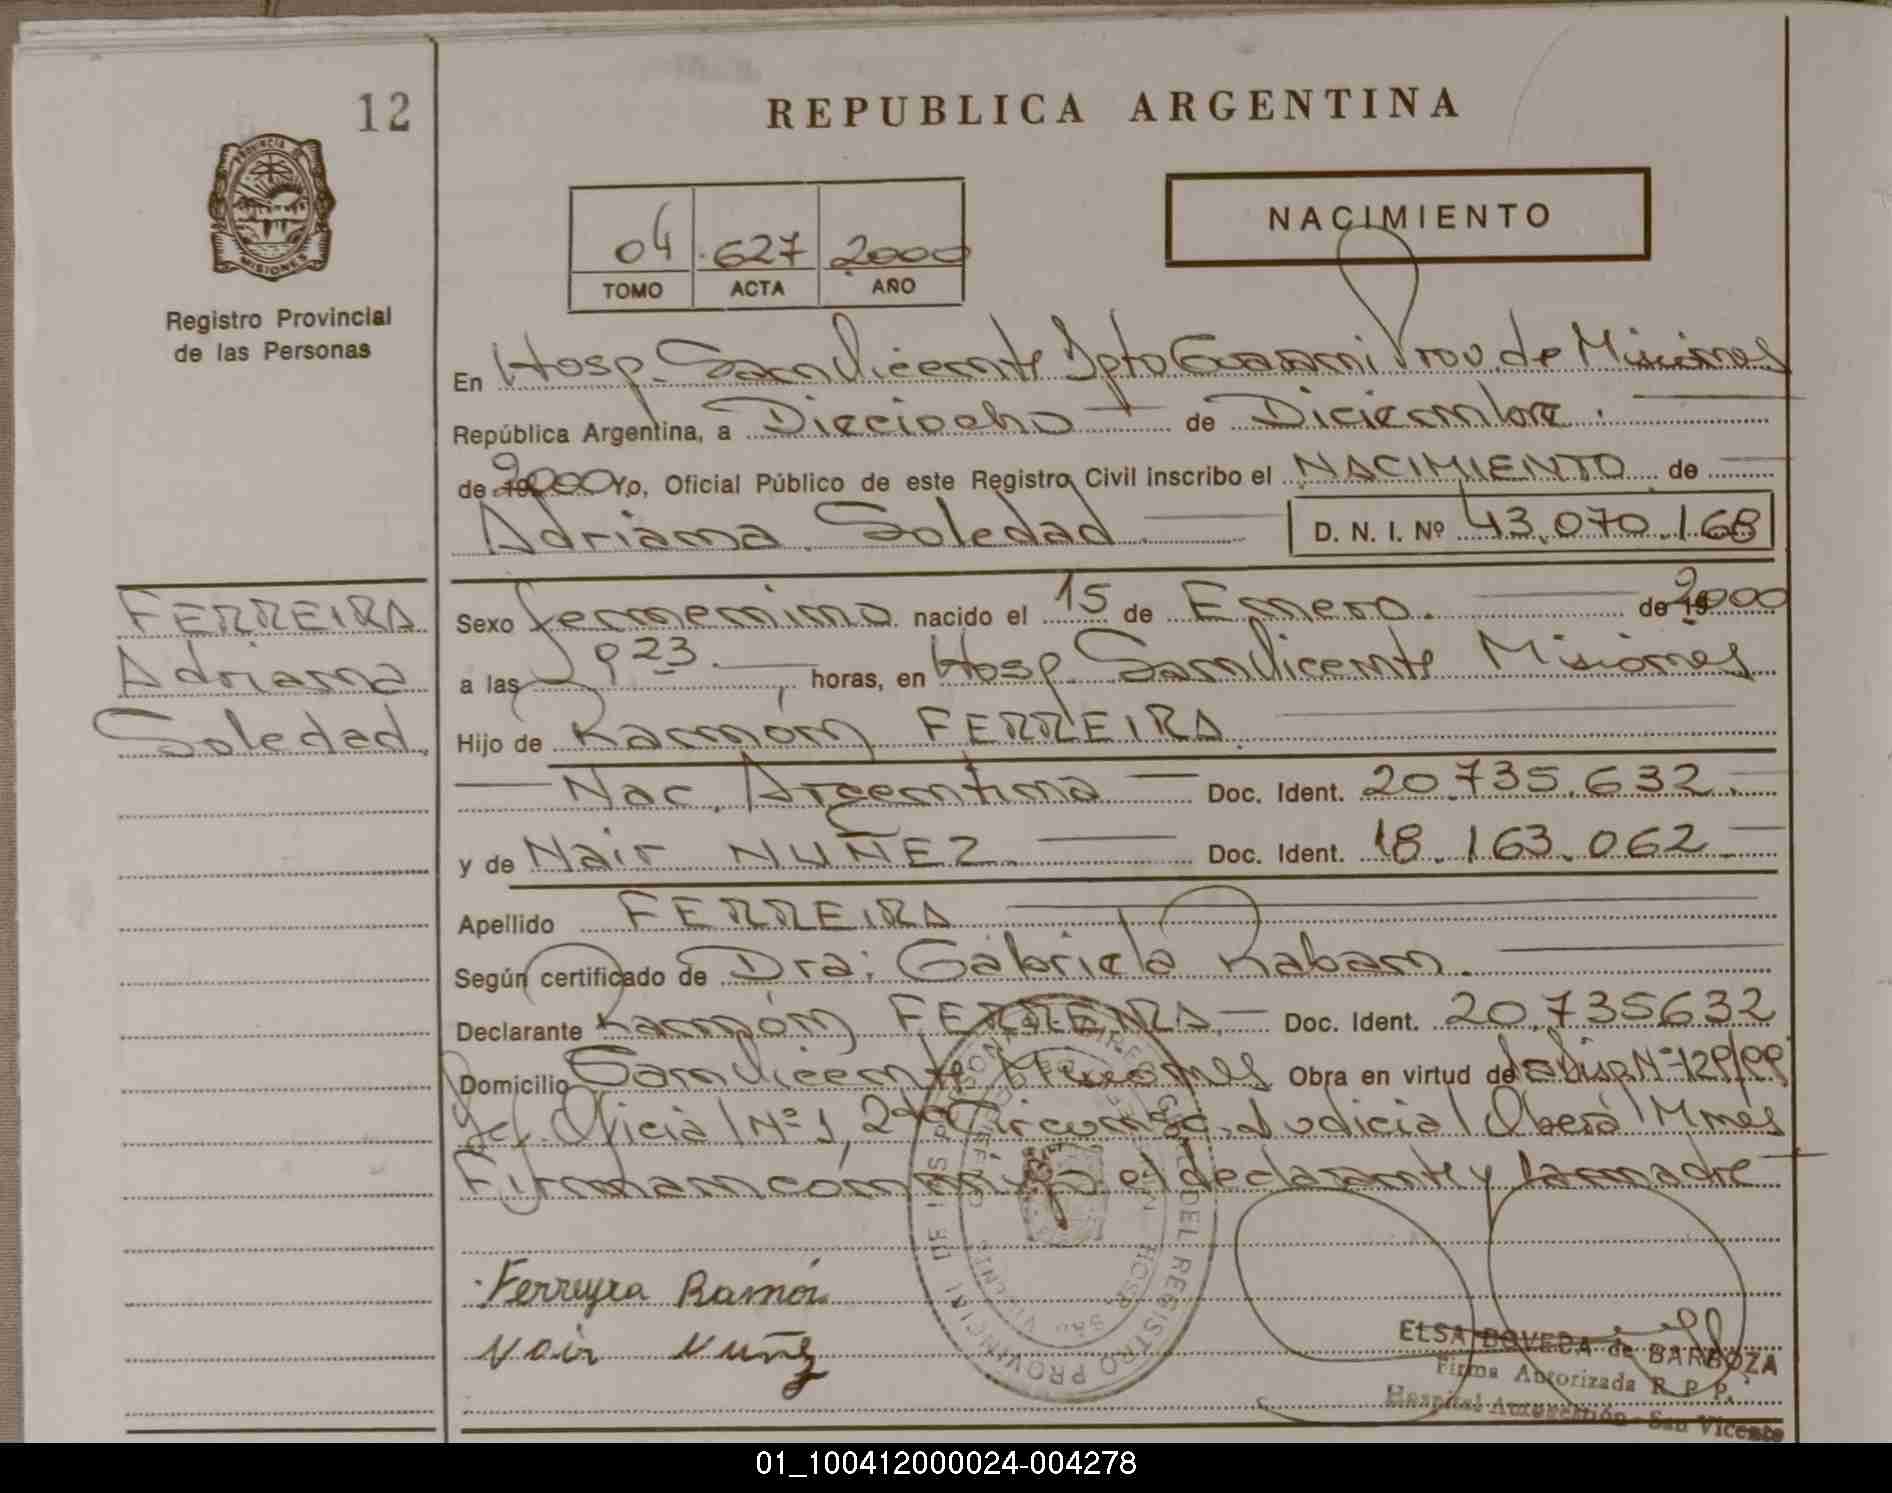 12
REPUBLICA ARGENTINA
PROVINCIA DE
MISIONES
Registro Provincial
de las Personas
04 627 2000
TOMO ACTA AÑO
NACIMIENTO
En Hosp. San Vicente Dpto Guarani Prov. de Misiones
República Argentina, a Dieciocho de Diciembre.
de 2000 Yo, Oficial Público de este Registro Civil inscribo el NACIMIENTO de
Adriana Soledad D. N. I. Nº 43.070.168
FERREIRA
Adriana
Soledad
Sexo femenino nacido el 15 de Enero. de 2000
a las 923. horas, en Hosp. San Vicente Misiones
Hijo de Ramón FERREIRA.
Nac. Argentina Doc. Ident. 20.735.632.
y de Nair NUÑEZ Doc. Ident. 18.163.062
Apellido FERREIRA
Según certificado de Dra. Gabriela Raban.
Declarante Ramón FERREIRA Doc. Ident. 20.735632
Domicilio San Vicente Misiones Obra en virtud de la Disp Nº 129/99
Def. Oficial Nº 1, 2da Circunsc. Judicial Oberá Mnes
Firman conmigo el declarante y la madre
Ferreyra Ramón
Nair Nuñez
DEL REGISTRO PROVINCIAL DE
ELSA BOVEDA de BARBOZA
Firma Autorizada R. P. P.
Hospital Autogestión - San Vicente
01_100412000024-004278